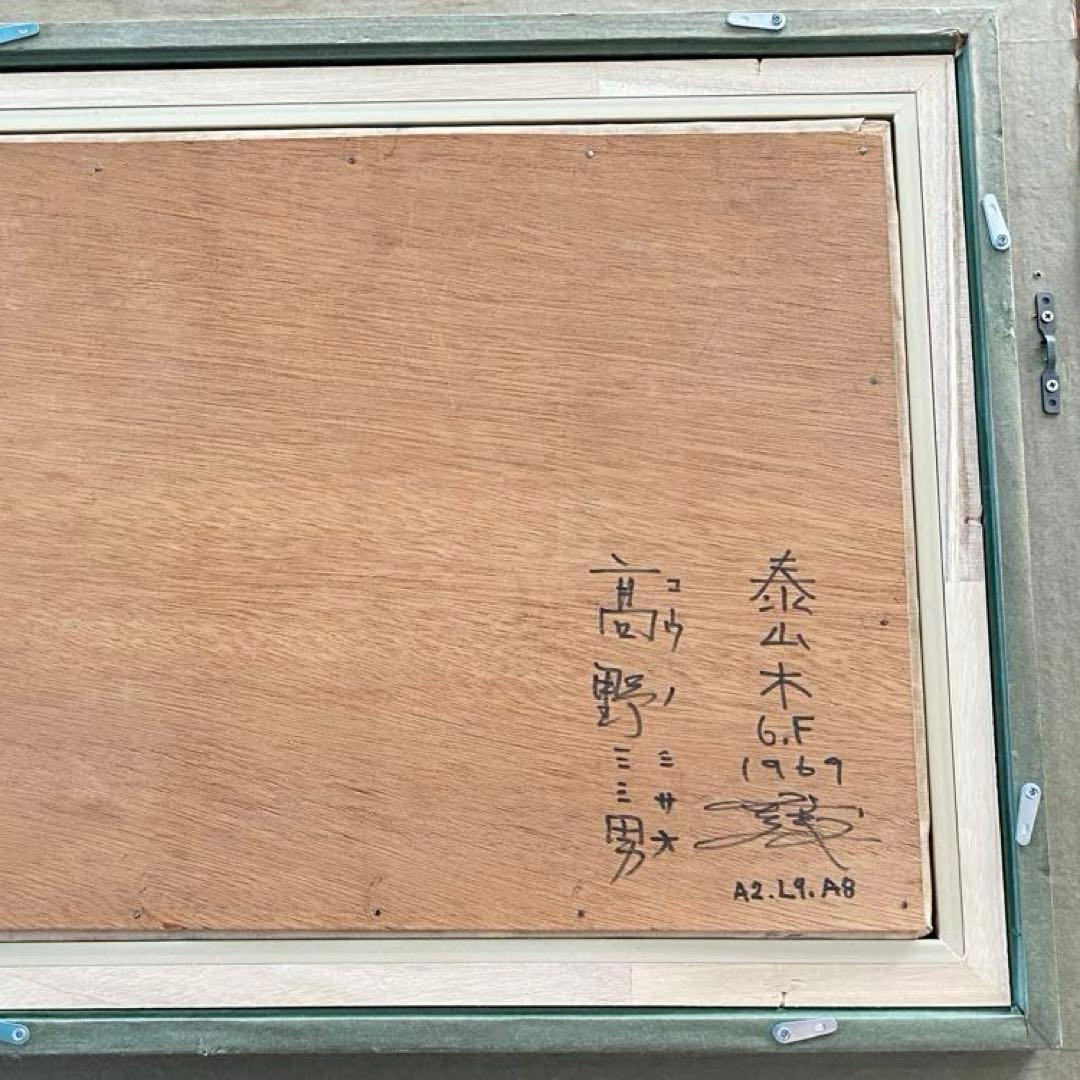 泰山木
6.F
1969
A2.L9.A8
コウノミサオ
髙野三三男